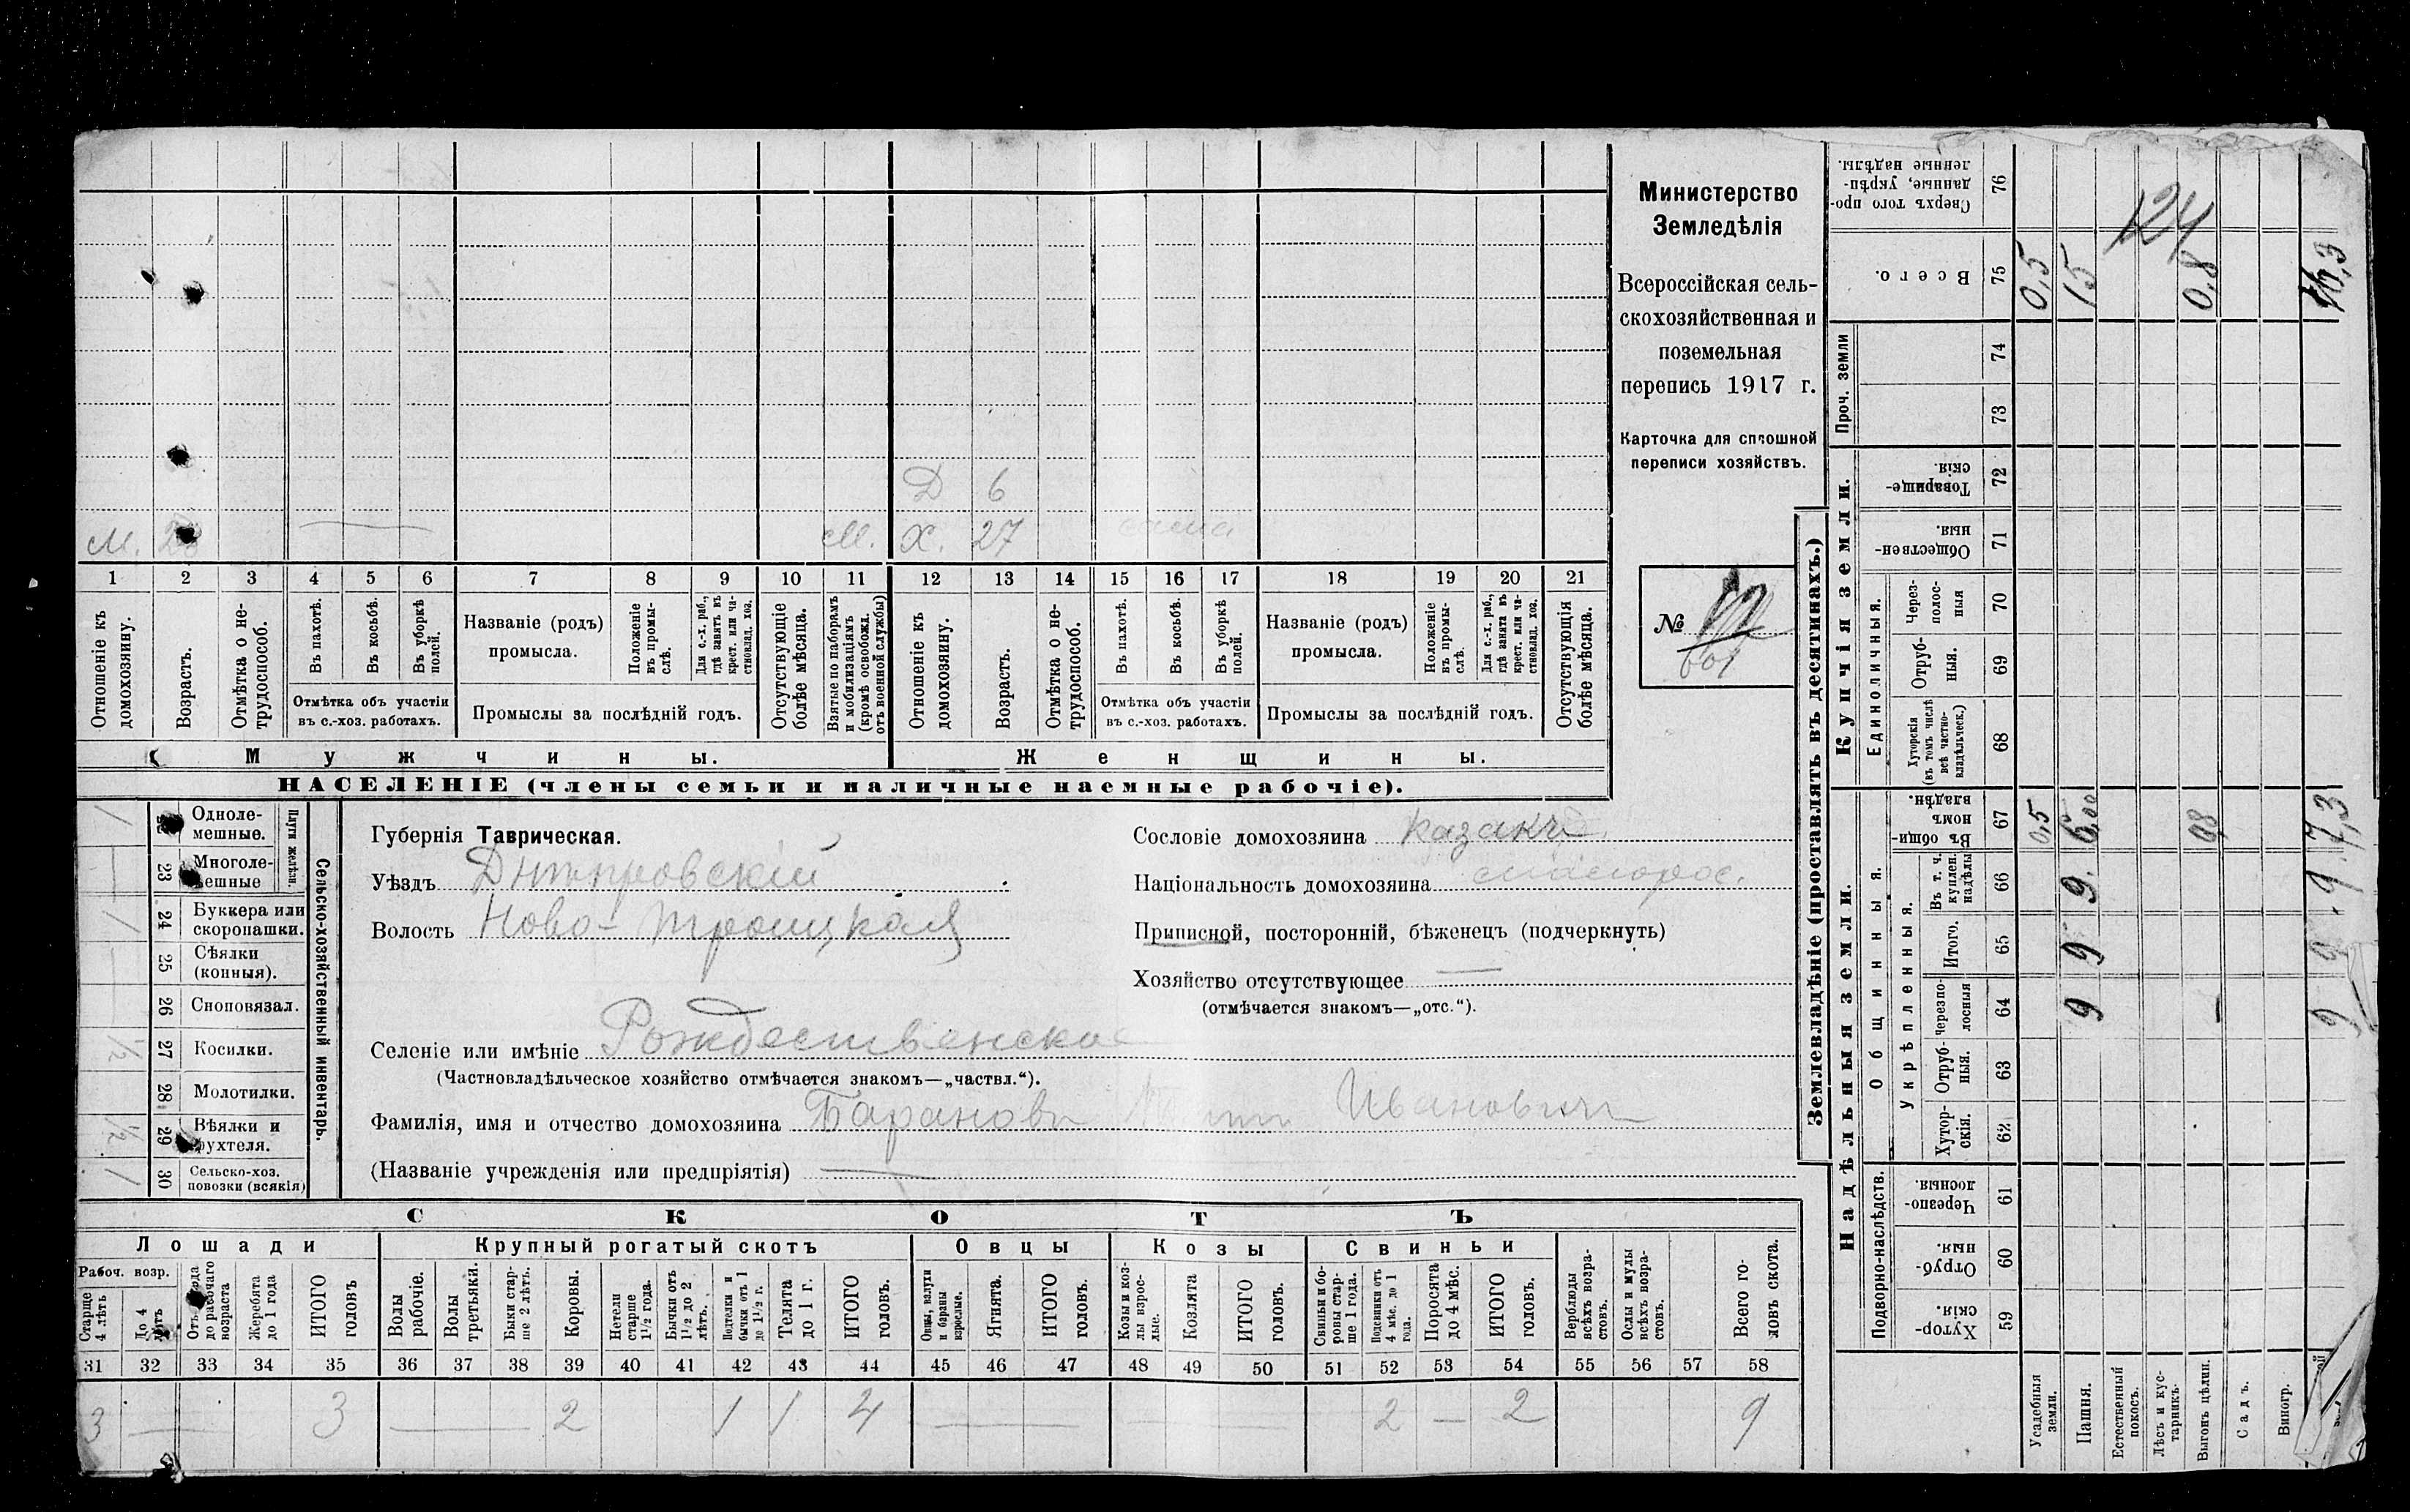 Министерство
Земледѣлія
Всероссійская сель-
скохозяйственная и
поземельная
перепись 1917 г.
Карточка для сплошной
переписи хозяйствъ.
№
Д 6
М. М. Х. 27
1 2 3 4 5 6 7 8 9 10 11 12 13 14 15 16 17 18 19 20 21
Отношеніе къ домохозяину.
Возрастъ.
Отмѣтка о не-трудоспособ.
Въ пахотѣ.
Въ косьбѣ.
Въ уборкѣ полей.
Отмѣтка объ участіи
въ с.-хоз. работахъ.
Названіе (родъ)
промысла.
Положеніе въ промы-слѣ.
Для с.-х. раб., гдѣ занятъ въ крест. или ча-стновлад. хоз.
Промыслы за послѣдній годъ.
Отсутствующіе болѣе мѣсяца.
Взятые по наборамъ и мобилизаціямъ (кромѣ освобожд. отъ военной службы)
Отношеніе къ домохозяину.
Возрастъ.
Отмѣтка о не-трудоспособ.
Въ пахотѣ.
Въ косьбѣ.
Въ уборкѣ полей.
Отмѣтка объ участіи
въ с.-хоз. работахъ.
Названіе (родъ)
промысла.
Положеніе въ промы-слѣ.
Для с.-х. раб., гдѣ занята въ крест. или ча-стновлад. хоз.
Промыслы за послѣдній годъ.
Отсутствующія болѣе мѣсяца.
Мужчины. Женщины.
НАСЕЛЕНІЕ (члены семьи и наличные наемные рабочіе).
Сельско-хозяйственный инвентарь.
Плуги желѣзн.
Одноле-мешные. /
23 Многоле-мешные —
24 Буккера или скоропашки. /
25 Сѣялки (конныя). —
26 Сноповязал. —
27 Косилки. ½
28 Молотилки. —
29 Вѣялки и трухтеля. ½
30 Сельско-хоз. повозки (всякія) /
Губернія Таврическая.
Уѣздъ Днѣпровскій
Волость Ново-Троицкая
Селеніе или имѣніе Рождественское
(Частновладѣльческое хозяйство отмѣчается знакомъ—„частвл.“).
Фамилія, имя и отчество домохозяина Барановъ Ивановичъ
(Названіе учрежденія или предпріятія) —
Сословіе домохозяина казакъ
Національность домохозяина малорос.
Приписной, посторонній, бѣженецъ (подчеркнуть)
Хозяйство отсутствующее —
(отмѣчается знакомъ—„отс.“).
СКОТЪ
Лошади Крупный рогатый скотъ Овцы Козы Свиньи
Рабоч. возр.
Старше 4 лѣтъ
До 4 лѣтъ
Отъ года до рабочаго возраста
Жеребята до 1 года
ИТОГО головъ
Волы рабочіе.
Волы третьяки.
Быки стар-ше 2 лѣтъ.
Коровы.
Нетели старше 1½ года.
Бычки отъ 1½ до 2 лѣтъ.
Подтелки и бычки отъ 1 до 1½ г.
Телята до 1 г.
ИТОГО головъ.
Овцы, валухи и бараны взрослые.
Ягнята.
ИТОГО головъ.
Козы и коз-лы взрос-лые.
Козлята
ИТОГО головъ.
Свиньи и бо-ровы стар-ше 1 года.
Подсвинки отъ 4 мѣс. до 1 года.
Поросята до 4 мѣс.
ИТОГО головъ.
Верблюды всѣхъ возра-стовъ.
Ослы и мулы всѣхъ возра-стовъ.
Всего го-ловъ скота.
31 32 33 34 35 36 37 38 39 40 41 42 43 44 45 46 47 48 49 50 51 52 53 54 55 56 57 58
3 — 3 — 2 1 1 4 — — 2 — 2 9
Землевладѣніе (проставлять въ десятинахъ.)
Надѣльныя земли.
Купчія земли.
Проч. земли
Подворно-наслѣдств.
Общинныя.
Укрѣпленныя.
Единоличныя.
Хутор-скія. 59
Отруб-ныя. 60
Черезпо-лосныя 61
Хутор-скія. 62
Отруб-ныя. 63
Черезпо-лосныя 64
Итого. 65
Въ т. ч. куплен. надѣлы 66
Въ общи-номъ владѣн. 67
Хуторскія (въ томъ числѣ всѣ частно-владѣльческ.) 68
Отруб-ныя. 69
Через-полос-ныя 70
Обществен-ныя. 71
Товарище-скія. 72
73
74
Всего. 75
Сверхъ того про-данные, укрѣп-ленные надѣлы. 76
Усадебныя земли. 0,5 0,5
Пашня. 9 9 9. 6,00 15
Естественный покосъ.
Лѣсъ и кус-тарникъ.
Выгонъ цѣлин. — 0,8 0,8
Садъ.
Виногр.
9 9. 9. 7,3 16,3
124